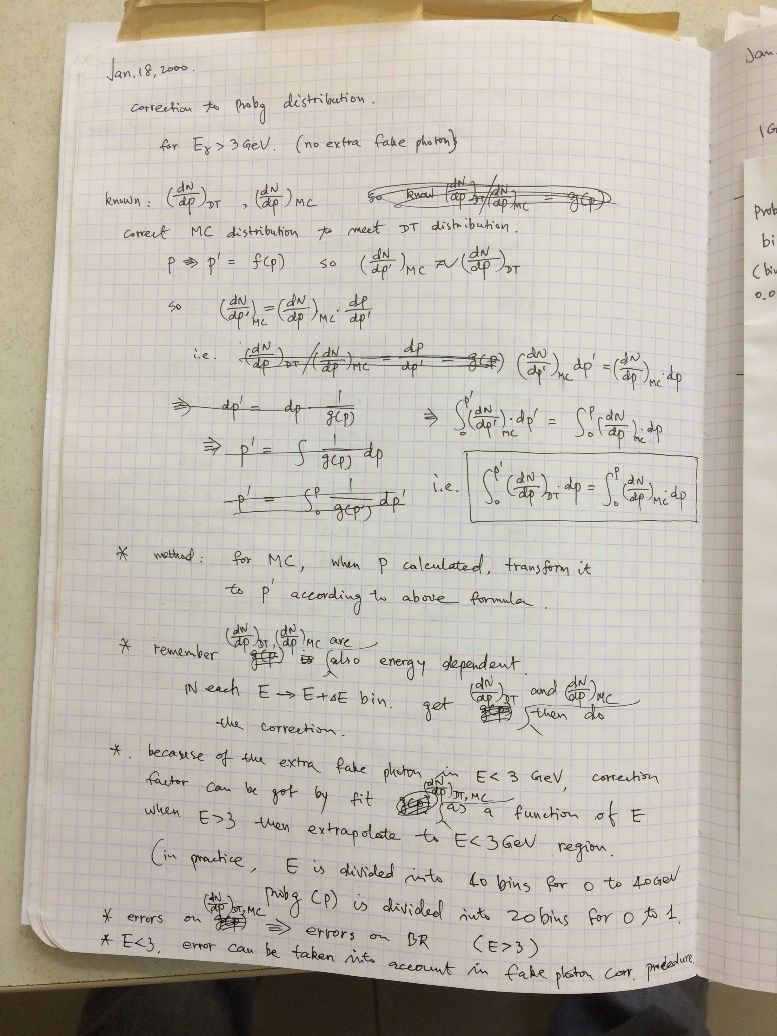 Jan. 18, 2000.
correction to Probg distribution.
for Eγ > 3 GeV. (no extra fake photon)
known: (dN/dp)DT , (dN/dp)MC so know (dN/dp)DT/(dN/dp)MC = g(p)
correct MC distribution to meet DT distribution.
p ⇒ p' = f(p) so (dN/dp')MC ≈ (dN/dp)DT
so (dN/dp')MC = (dN/dp)MC · dp/dp'
i.e. (dN/dp)DT/(dN/dp)MC = dp/dp' = g(p) (dN/dp')MC dp' = (dN/dp)MC · dp
⇒ dp' = dp 1/g(p) ⇒ ∫₀^p' (dN/dp')MC · dp' = ∫₀^p (dN/dp)MC · dp
⇒ p' = ∫ 1/g(p) dp
p' = ∫₀^p 1/g(p') dp' i.e. ∫₀^p' (dN/dp)DT · dp = ∫₀^p (dN/dp)MC · dp
* method: for MC, when p calculated, transform it
to p' according to above formula.
(dN/dp)DT, (dN/dp)MC are
* remember g(p) is also energy dependent.
IN each E → E+ΔE bin. get (dN/dp)DT and (dN/dp)MC then do
the correction.
*. because of the extra fake photon in E < 3 GeV, correction
factor can be got by fit g(p) (dN/dp)DT, MC as a function of E
when E>3 then extrapolate to E < 3 GeV region.
(in practice, E is divided into 40 bins for 0 to 40 GeV
probg (p) is divided into 20 bins for 0 to 1.
* errors on (dN/dp)DT, MC ⇒ errors on BR (E>3)
* E<3. error can be taken into account in fake photon corr. procedure.
Jan.
1G
Prob
bi
(bi
0.0